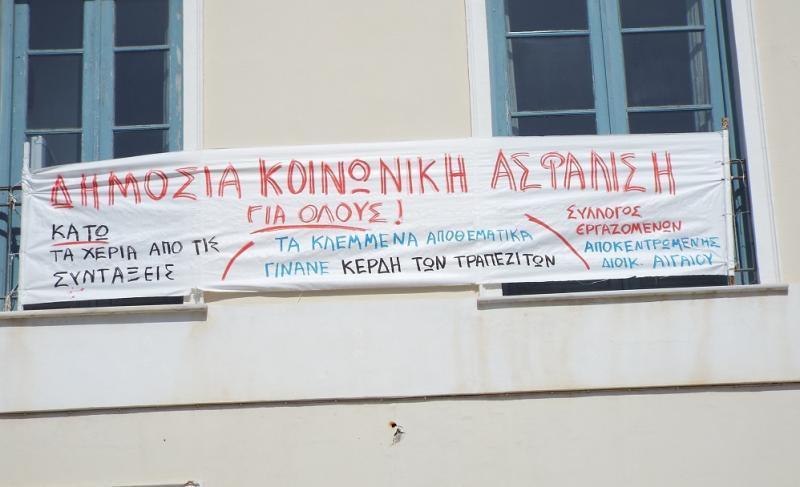 ΔΗΜΟΣΙΑ ΚΟΙΝΩΝΙΚΗ ΑΣΦΑΛΙΣΗ
ΓΙΑ ΟΛΟΥΣ!
ΚΑΤΩ
ΤΑ ΧΕΡΙΑ ΑΠΟ ΤΙΣ
ΣΥΝΤΑΞΕΙΣ
ΤΑ ΚΛΕΜΜΕΝΑ ΑΠΟΘΕΜΑΤΙΚΑ
ΓΙΝΑΝΕ ΚΕΡΔΗ ΤΩΝ ΤΡΑΠΕΖΙΤΩΝ
ΣΥΛΛΟΓΟΣ
ΕΡΓΑΖΟΜΕΝΩΝ
ΑΠΟΚΕΝΤΡΩΜΕΝΗΣ
ΔΙΟΙΚ. ΑΙΓΑΙΟΥ